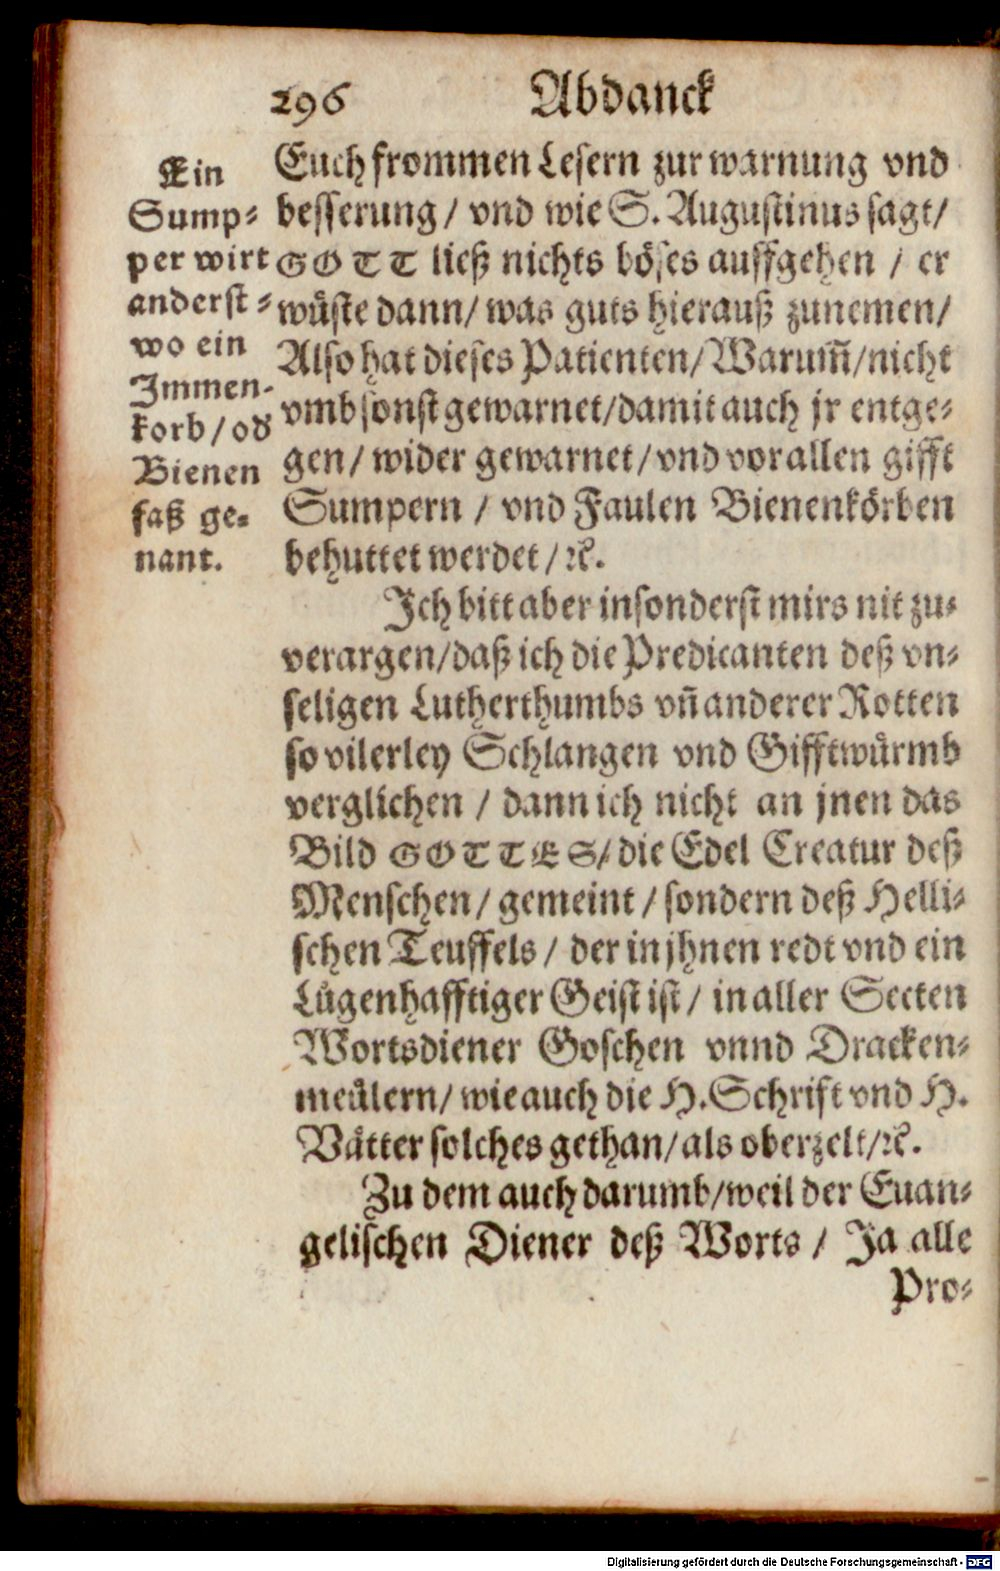 296 Abdanck
Ein
Sump-
per wirt
anderst-
wo ein
Immen-
korb / od
Bienen
faß ge-
nant.
Euch frommen Lesern zur warnung vnd
besserung / vnd wie S. Augustinus sagt /
GOTT ließ nichts böses auffgehen / er
wůste dann / was guts hierauß zunemen /
Also hat dieses Patienten / Warum̃ / nicht
vmbsonst gewarnet / damit auch jr entge-
gen / wider gewarnet / vnd vor allen gifft
Sumpern / vnd Faulen Bienenkörben
behuttet werdet / ꝛc.
Ich bitt aber insonderst mirs nit zu-
verargen / daß ich die Predicanten deß vn-
seligen Lutherthumbs vn̄ anderer Rotten
so vilerley Schlangen vnd Gifftwůrmb
verglichen / dann ich nicht an jnen das
Bild GOTTES / die Edel Creatur deß
Menschen / gemeint / sondern deß Helli-
schen Teuffels / der in jhnen redt vnd ein
Lůgenhafftiger Geist ist / in aller Secten
Wortsdiener Goschen vnnd Dracken-
meůlern / wie auch die H. Schrift vnd H.
Våtter solches gethan / als oberzelt / ꝛc.
Zu dem auch darumb / weil der Euan-
gelischen Diener deß Worts / Ja alle
Pro-
Digitalisierung gefördert durch die Deutsche Forschungsgemeinschaft - DFG